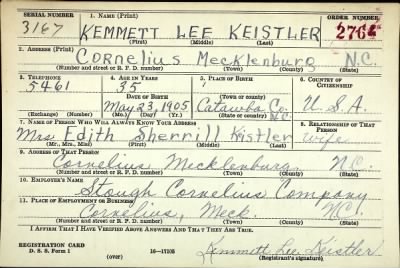 SERIAL NUMBER 1. NAME (Print) ORDER NUMBER
3167 KEMMETT LEE KEISTLER 2764
(First) (Middle) (Last)
2. ADDRESS (Print)
Cornelius Mecklenburg N.C.
(Number and street or R. F. D. number) (Town) (County) (State)
3. TELEPHONE 4. AGE IN YEARS 5. PLACE OF BIRTH 6. COUNTRY OF CITIZENSHIP
5461 35
DATE OF BIRTH (Town or county)
May 23, 1905 Catawba Co. N.C. U.S.A.
(Exchange) (Number) (Mo.) (Day) (Yr.) (State or country)
7. NAME OF PERSON WHO WILL ALWAYS KNOW YOUR ADDRESS 8. RELATIONSHIP OF THAT PERSON
Mrs Edith Sherrill Kistler wife
(Mr., Mrs., Miss) (First) (Middle) (Last)
9. ADDRESS OF THAT PERSON
Cornelius Mecklenburg N.C.
(Number and street or R. F. D. number) (Town) (County) (State)
10. EMPLOYER'S NAME
Stough Cornelius Company
11. PLACE OF EMPLOYMENT OR BUSINESS
Cornelius, Meck. N.C.
(Number and street or R. F. D. number) (Town) (County) (State)
I AFFIRM THAT I HAVE VERIFIED ABOVE ANSWERS AND THAT THEY ARE TRUE.
REGISTRATION CARD
D. S. S. Form 1 (over) 16—17105 Kemmett Lee Keistler
(Registrant's signature)